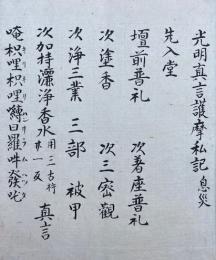 光明真言護摩私記 息災
先入堂
壇前普礼 次着座普礼
次塗香 次三密觀
次浄三業 三部 被甲
次加持灑浄香水 用三古杵 真言
唵枳哩枳哩嚩日羅吽發吒